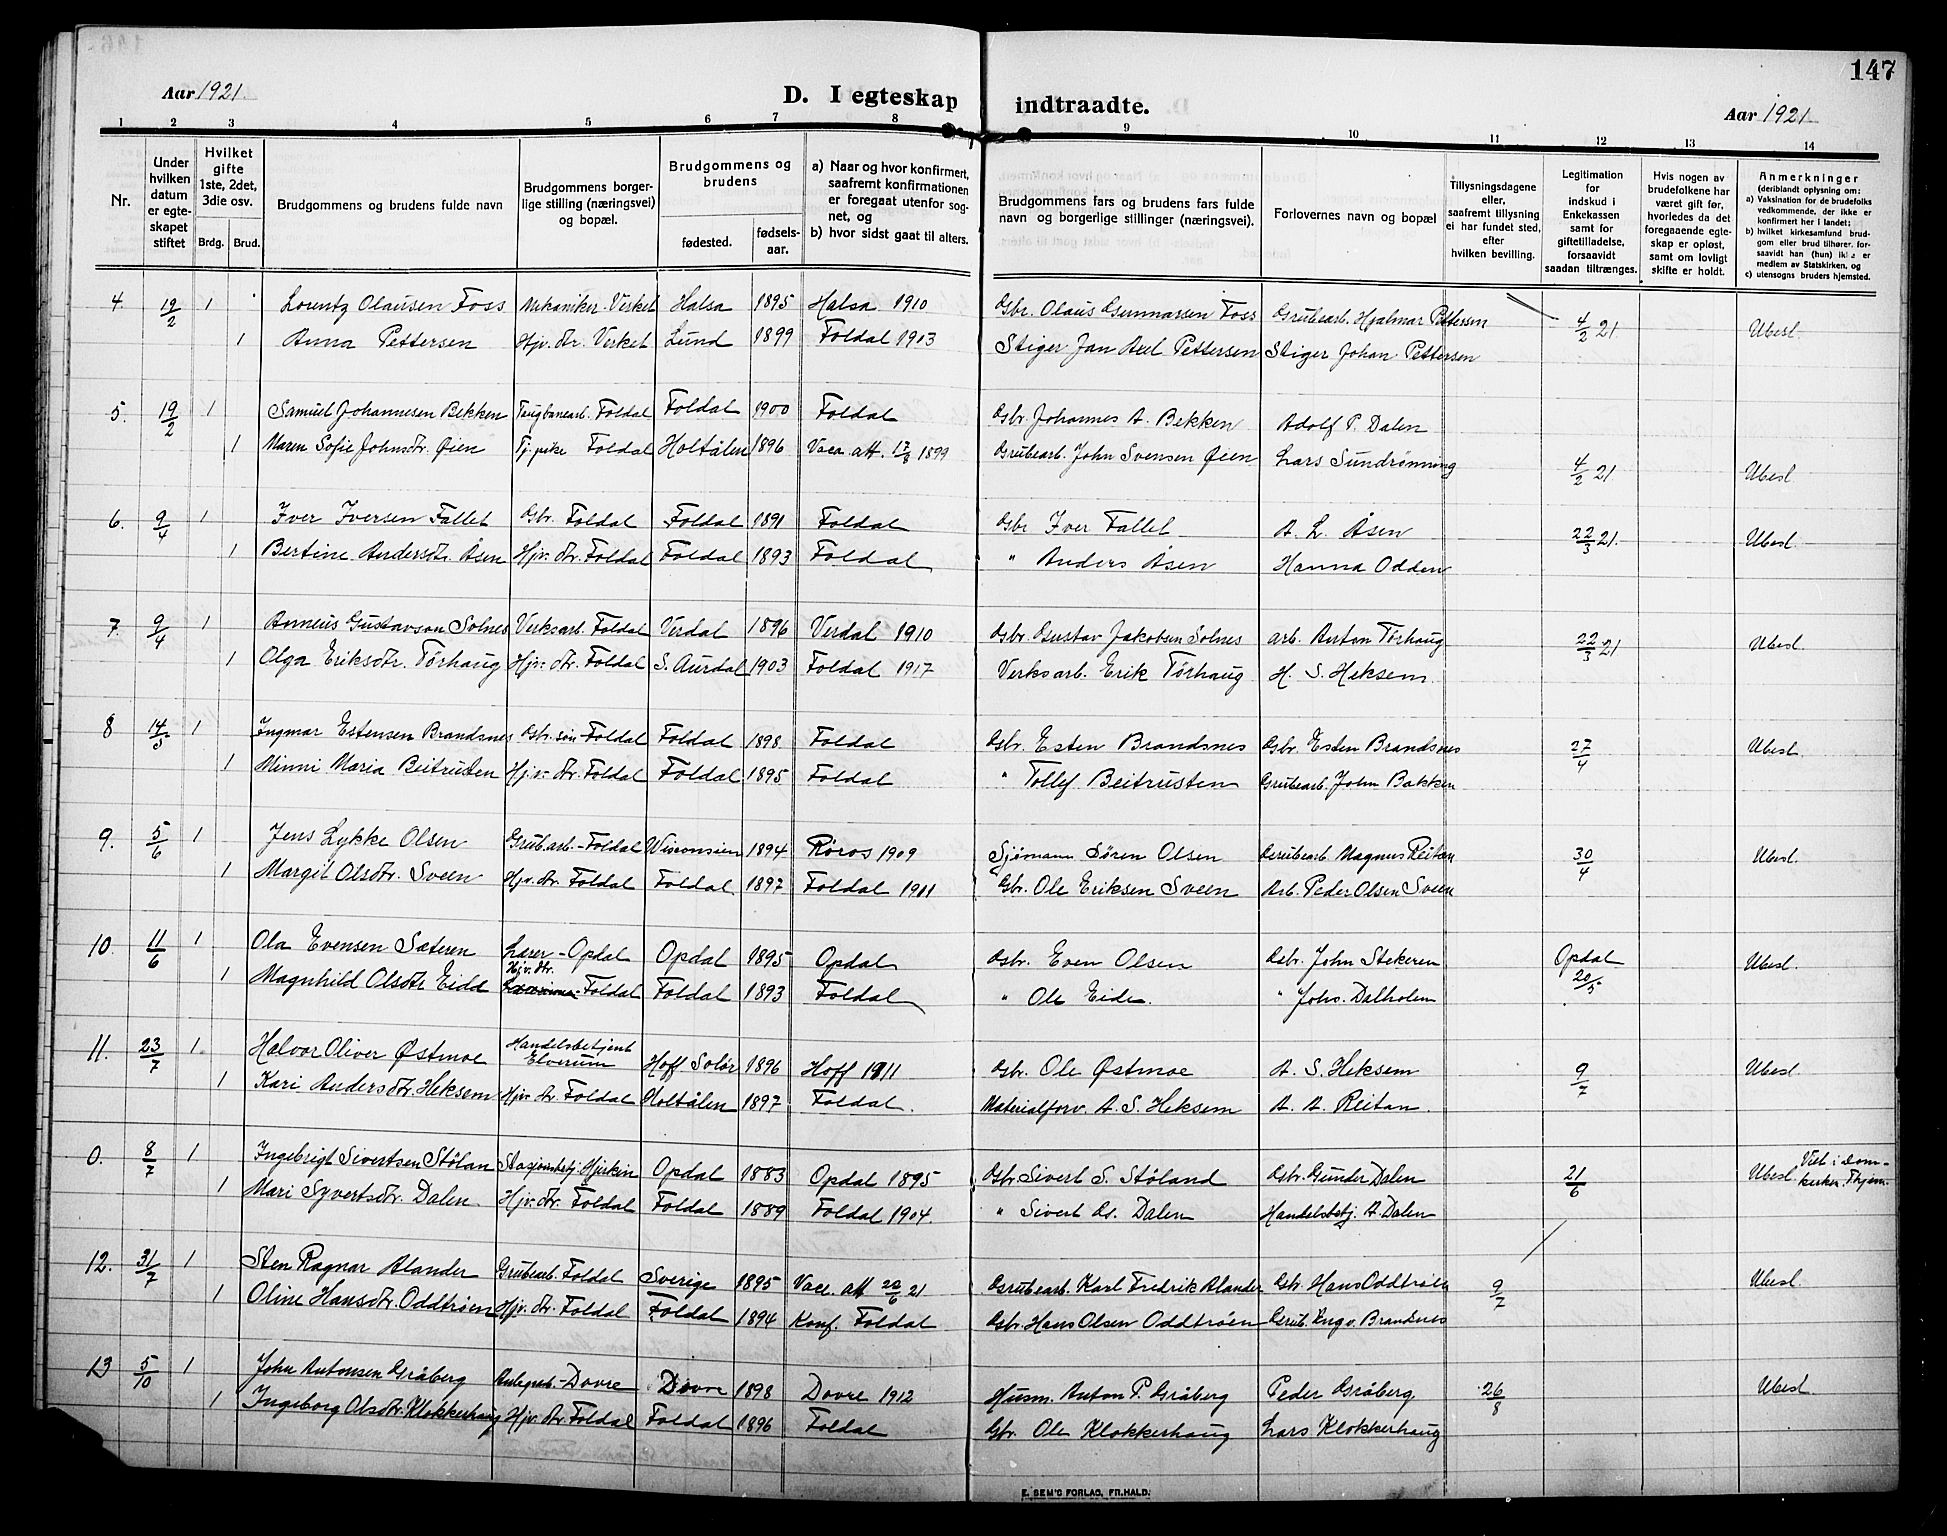 147
Aar 1921. D. I egteskap indtraadte. Aar 1921
1 2 3 4 5 6 7 8 9 10 11 12 13 14
Nr.
Under hvilken datum er egteskapet stiftet
Hvilket gifte 1ste, 2det, 3die osv.
Brdg. Brud.
Brudgommens og brudens fulde navn
Brudgommens borgerlige stilling (næringsvei) og bopæl.
Brudgommens og brudens
fødested. fødselsaar.
a) Naar og hvor konfirmert, saafremt konfirmationen er foregaat utenfor sognet, og
b) hvor sidst gaat til alters.
Brudgommens fars og brudens fars fulde navn og borgerlige stillinger (næringsvei).
Forlovernes navn og bopæl
Tillysningsdagene eller, saafremt tillysning ei har fundet sted, efter hvilken bevilling.
Legitimation for indskud i Enkekassen samt for giftetilladelse, forsaavidt saadan tiltrænges.
Hvis nogen av brudefolkene har været gift før, hvorledes da det foregaaende egteskap er opløst, samt om lovligt skifte er holdt.
Anmerkninger
(deriblandt oplysning om:
a) Vaksination for de brudefolks vedkommende, der ikke er konfirmert her i landet;
b) hvilket kirkesamfund brudgom eller brud tilhører, forsaavidt han (hun) ikke er medlem av Statskirken, og
c) utensogns bruders hjemsted.
4 12/2 1 Lorentz Olausen Foss Mekaniker. Verket Halsa 1895 Halsa 1910 Gbr. Olaus Gunnarsen Foss Grubearb. Hjalmar Pettersen 4/2 21 Ubesl.
1 Anna Pettersen Hjv. dtr. Verket Lund 1899 Foldal 1903 Stiger Jan Axel Pettersen Stiger Johan Pettersen
5. 19/2 1 Samuel Johannesen Bekken Taugbanearb. Foldal Foldal 1900 Foldal Gbr. Johannes A. Bekken Adolf P. Dalen
1 Maren Sofie Johnsdtr. Øien Tj. pike Foldal Holtålen 1896 Vacc. att. 17/8 1899 Grubearb. John Svensen Øien Lars Sundrønning 4/2 21. Ubesl.
6. 9/4 1 Iver Iversen Fallet Gbr. Foldal Foldal 1891 Foldal Gbr Iver Fallet A. L. Åsen 22/3 21. Ubesl.
1 Bertine Andersdtr. Åsen Hjv. dtr. Foldal Foldal 1893 Foldal " Anders Åsen Hanna Odden
7. 9/4 1 Arneus Gustavson Solnes Verksarb. Foldal Verdal 1896 Verdal 1910 Gbr. Gustav Jakobsen Solnes arb. Anton Tørhaug 22/3 21 Ubesl.
1 Olga Eriksdtr. Tørhaug Hjv. dtr. Foldal S. Aurdal 1903 Foldal 1917 Verksarb. Erik Tørhaug H. S. Heksem.
8 14/5 1 Ingmar Estensen Brandsnes Gbr. søn - Foldal Foldal 1898 Foldal Gbr. Esten Brandsnes Gbr. Esten Brandsnes 27/4 Ubesl.
1 Minni Maria Beitrusten Hjv. dtr. Foldal Foldal 1895 Foldal " Tollef Beitrusten Grubearb. John Bakken
9. 5/6 1 Jens Lykke Olsen Grub.arb. - Foldal Wisconsien 1894 Røros 1909 Sjømann Søren Olsen Grubearb. Magnus Reitan 30/4 Ubesl.
1 Margit Olsdtr. Sveen Hjv. dtr. Foldal Foldal 1897 Foldal 1911 Gbr. Ole Eriksen Sveen Arb. Peder Olsen Sveen
10. 11/6 1 Ola Evensen Sæteren Lærer - Opdal Opdal 1895 Opdal Gbr. Even Olsen Gbr. John Stekeren Opdal 20/5 Ubesl.
1 Magnhild Olsdtr Eide Hjv. dtr. Foldal Foldal 1893 Foldal " Ole Eide. " Johs. Dalholen
11. 23/7 1. Halvor Oliver Østmoe Handelsbetjent Elverum Hoff Solør 1896 Hoff 1911 Gbr. Ole Østmoe A. S. Heksem 9/7 Ubesl.
1 Kari Andersdtr. Heksem Hjv. dtr Foldal Holtålen 1897 Foldal. Materialforv. A. S. Heksem A. A. Reitan.
0. 8/7 1 Ingebrigt Sivertsen Stølan Stasjonsbetj. Hjerkin Opdal 1883 Opdal 1895 Gbr. Sivert S. Støland Gbr. Gunder Dalen 21/6 Ubesl. Viet i Domkirken, Thjem.
1 Mari Syvertsdtr. Dalen. Hjv. dtr. Foldal Foldal 1889 Foldal 1904. " Sivert G. Dalen Handelsbetj. A. Dalen
12. 31/7 1 Sten Ragnar Alander Grubearb. Foldal Sverige 1895 Vacc. att 20/6 21 Grubearb. Karl Fredrik Alander Gbr. Hans Oddtrøen 9/7 Ubesl
1 Oline Hansdtr. Oddtrøen Hjv. dtr. Foldal Foldal 1894 Konf. Foldal Gbr. Hans Olsen Oddtrøen Grub. Ingv. Brandsnes
13 5/10 1 John Antonsen Gråberg Anlegsarb. - Dovre Dovre 1898 Dovre 1912 Husm. Anton P. Gråberg Peder Gråberg 26/8 Ubesl
1 Ingeborg Olsdtr. Klokkerhaug Hjv. dtr Foldal Foldal 1896 Foldal Gbr. Ole Klokkerhaug Lars Klokkerhaug
E. SEM'S FORLAG, FR.HALD.